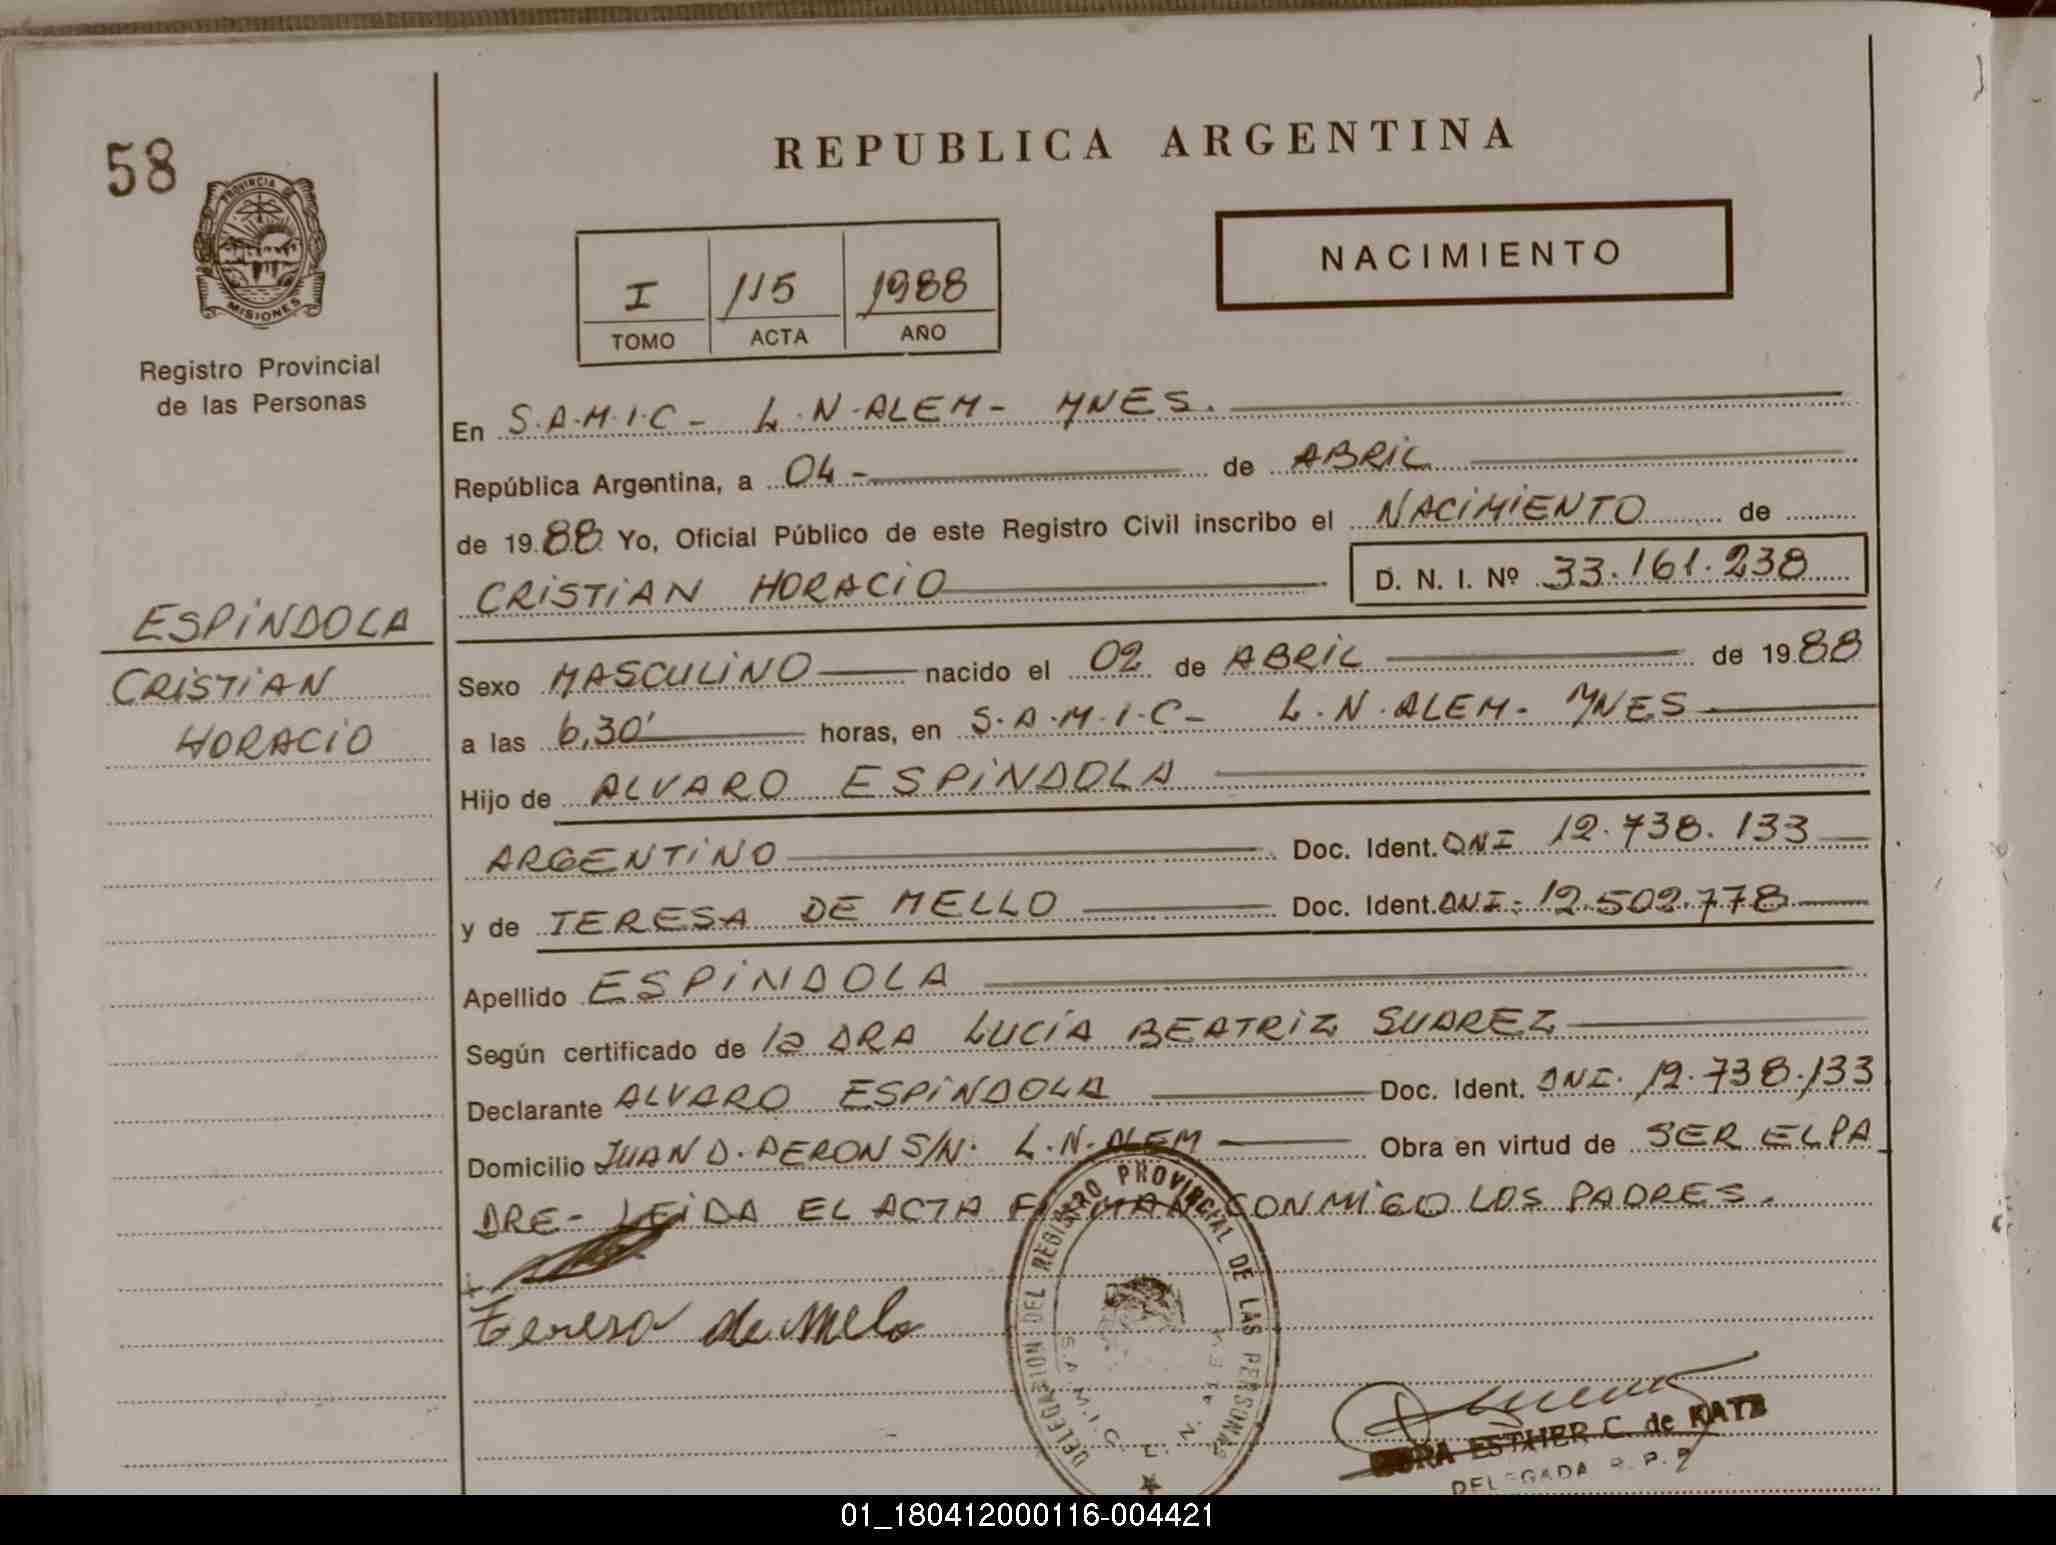 58
PROVINCIA DE
MISIONES
Registro Provincial
de las Personas
ESPINDOLA
CRISTIAN
HORACIO
REPUBLICA ARGENTINA
NACIMIENTO
I 115 1988
TOMO ACTA AÑO
En S.A.M.I.C - L.N.ALEM - MNES.
República Argentina, a 04 - de ABRIL
de 1988 Yo, Oficial Público de este Registro Civil inscribo el NACIMIENTO de
CRISTIAN HORACIO D. N. I. Nº 33.161.238
Sexo MASCULINO nacido el 02 de ABRIL de 1988
a las 6,30' horas, en S.A.M.I.C - L.N.ALEM - MNES
Hijo de ALVARO ESPINDOLA
ARGENTINO Doc. Ident. DNI 12.738.133
y de TERESA DE MELLO Doc. Ident. DNI: 12.502.778
Apellido ESPINDOLA
Según certificado de la DRA LUCIA BEATRIZ SUAREZ
Declarante ALVARO ESPINDOLA Doc. Ident. DNI. 12.738.133
Domicilio JUAN D. PERON S/N. L.N.ALEM Obra en virtud de SER EL PA
DRE - LEIDA EL ACTA FIRMAN CONMIGO LOS PADRES.
Teresa de Melo
DELEGACION DEL REGISTRO PROVINCIAL DE LAS PERSONAS
S.A.M.I.C. L. N. ALEM
ESTHER C. de KATZ
DELEGADA R. P. P
01_180412000116-004421